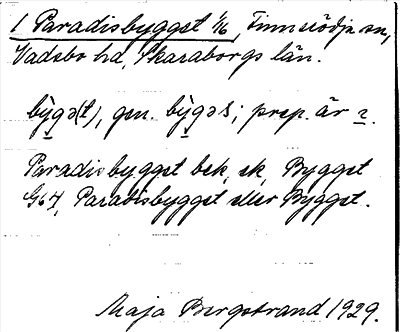 1 Paradisbygget 1/16, Finnerödja sn,
Vadsbo hd, Skaraborgs län.
bỳgə(t), gen. bỳgəs; prep. är
Paradisbygget bek. sk. Bygget
Parabisbygget eller Bygget.
Maja Bergstrand 1929.